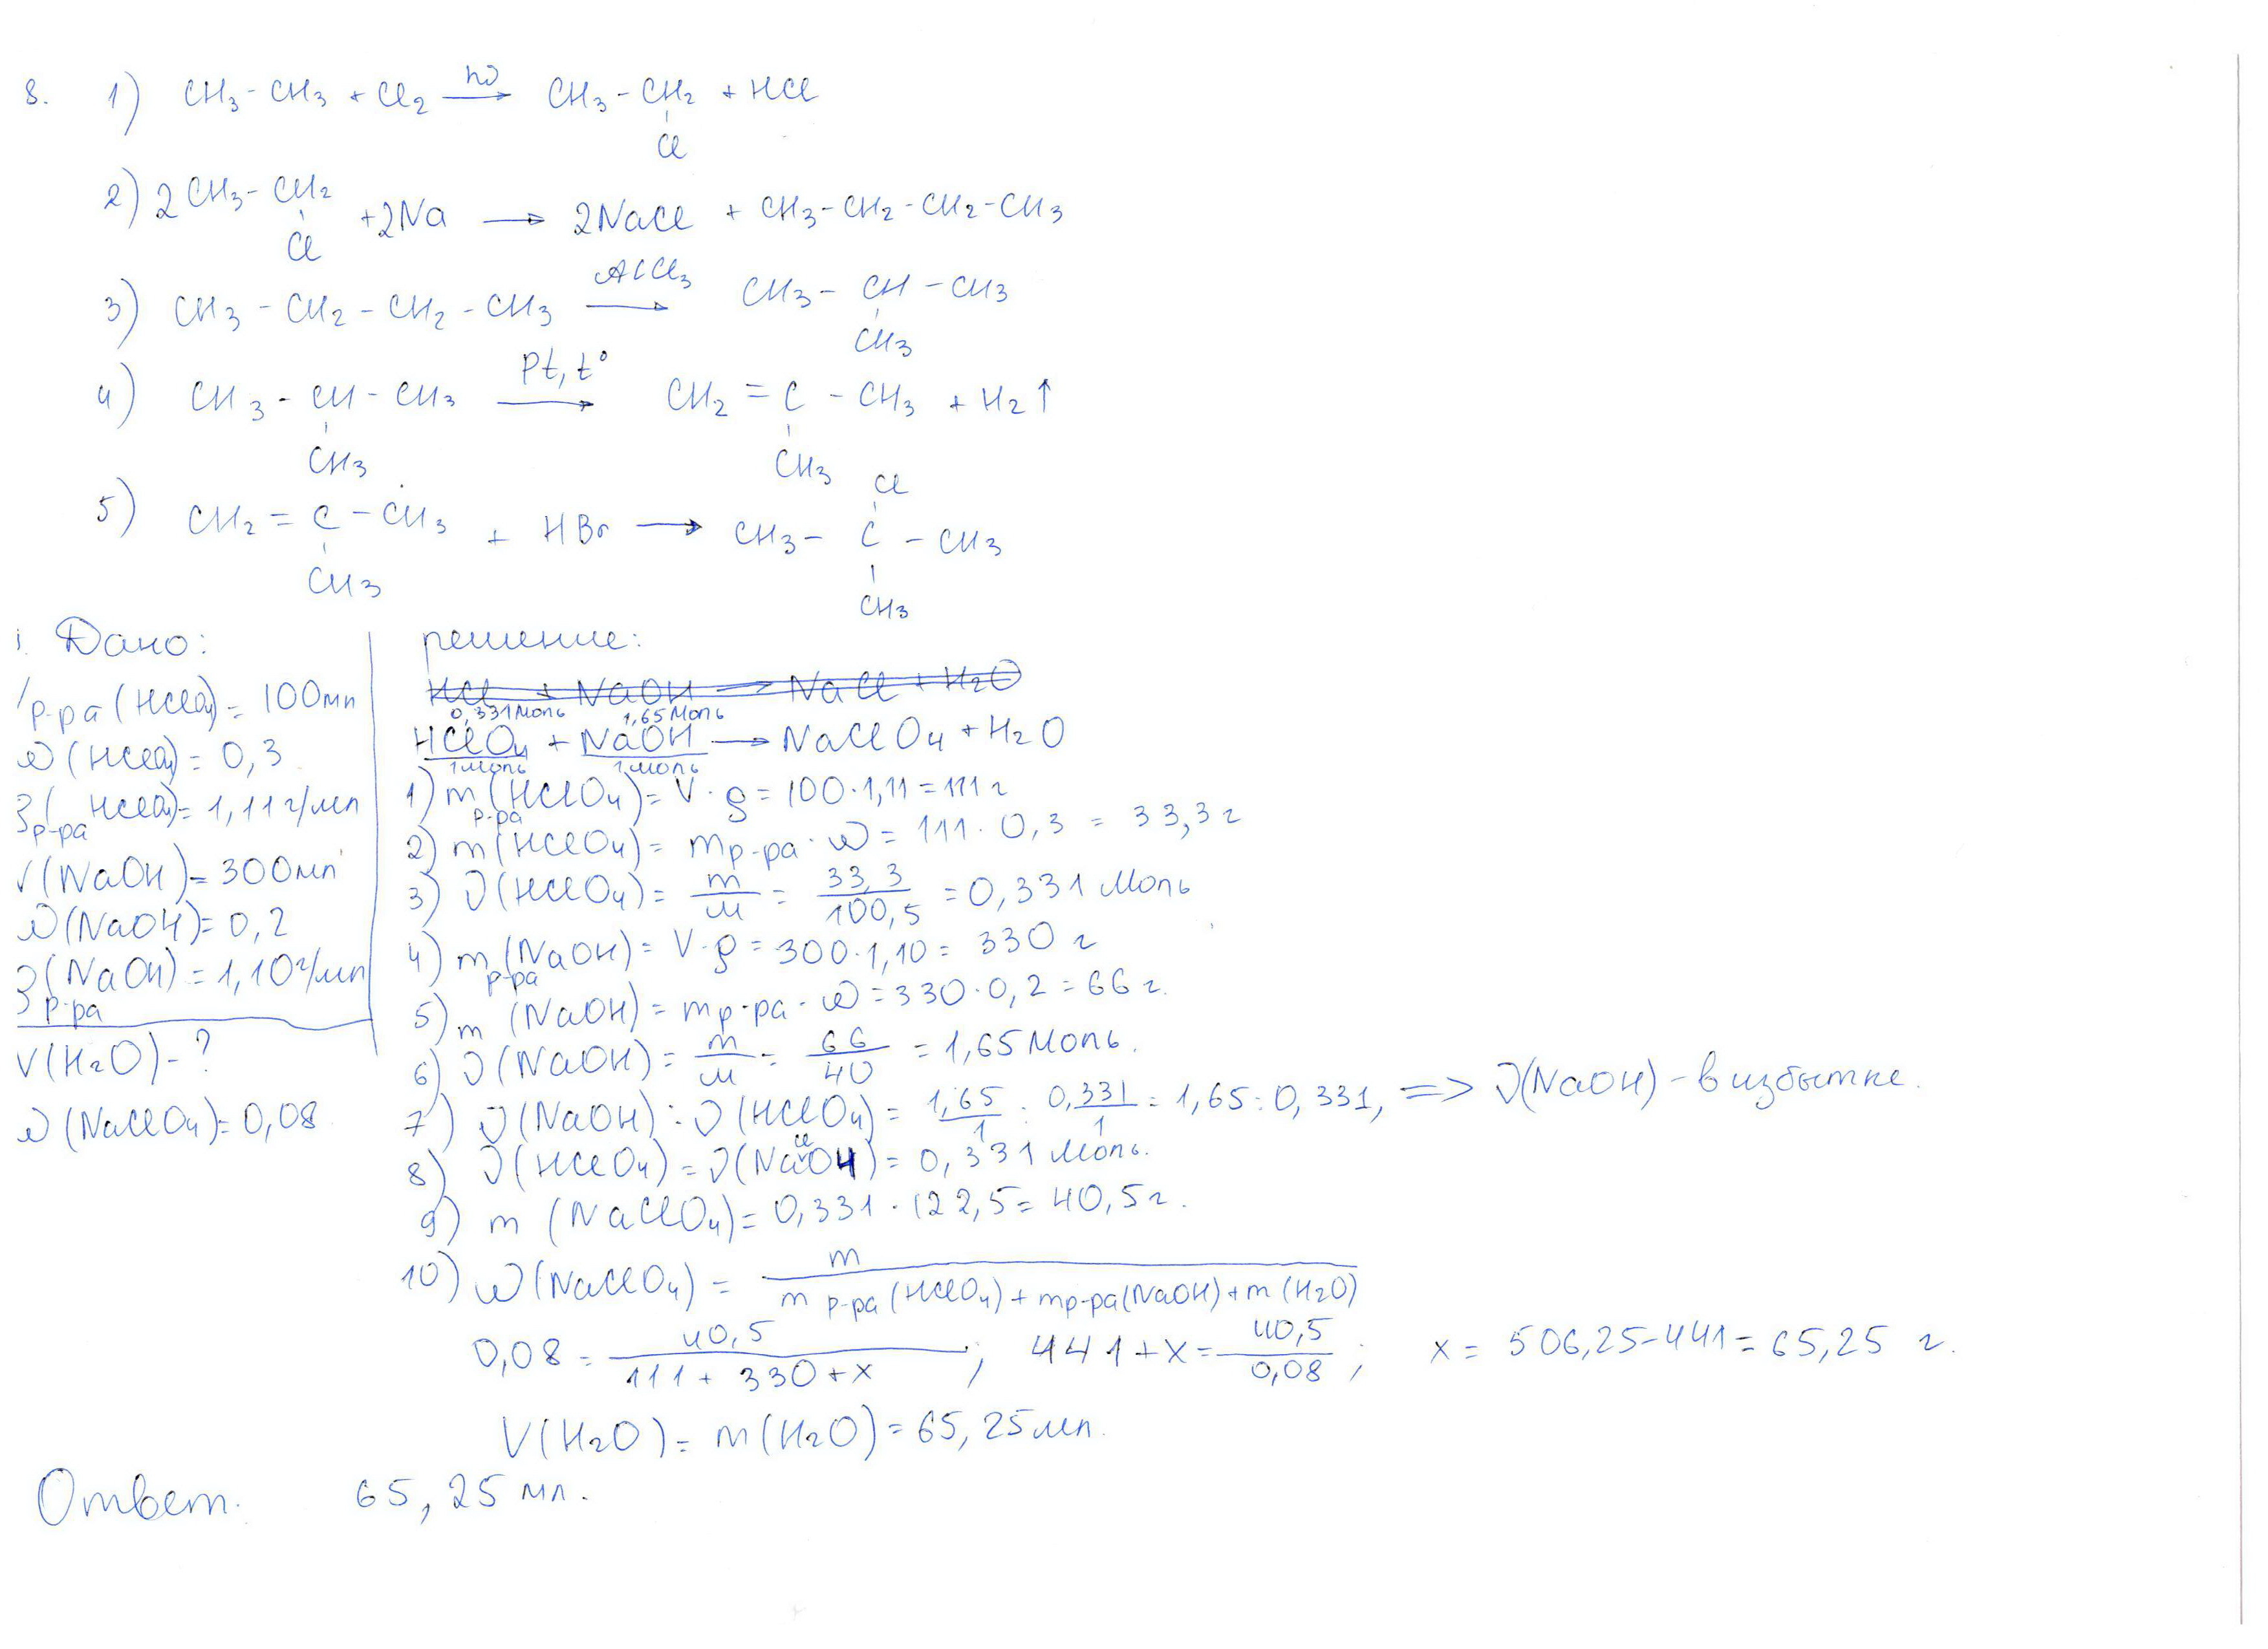 8. 1) CH3-CH3 + Cl2 hν → CH3-CH2 + HCl
Cl
2) 2CH3-CH2 + 2Na → 2NaCl + CH3-CH2-CH2-CH3
Cl
3) CH3-CH2-CH2-CH3 AlCl3 → CH3-CH-CH3
CH3
4) CH3-CH-CH3 Pt, t° → CH2=C-CH3 + H2↑
CH3 CH3
Cl
5) CH2=C-CH3 + HBr → CH3-C-CH3
CH3 CH3
Дано:
р-ра(HClO4)=100мл
ω(HClO4)=0,3
ρ(HClO4)=1,11г/мл
р-ра
V(NaOH)=300мл
ω(NaOH)=0,2
ρ(NaOH)=1,10г/мл
р-ра
V(H2O)-?
ω(NaClO4)=0,08
решение:
HCl + NaOH → NaCl + H2O
0,331моль 1,65моль
HClO4 + NaOH → NaClO4 + H2O
1моль 1моль
1) m(HClO4)=V·ρ=100·1,11=111г
р-ра
2) m(HClO4)= mр-ра·ω=111·0,3=33,3г
3) ν(HClO4)= m/M = 33,3/100,5 =0,331моль
4) m(NaOH)=V·ρ=300·1,10=330г
р-ра
5) m(NaOH)=mр-ра·ω=330·0,2=66г.
6) ν(NaOH)= m/M = 66/40 =1,65моль.
7) ν(NaOH):ν(HClO4)= 1,65/1 : 0,331/1 =1,65:0,331, => ν(NaOH)-в избытке.
8) ν(HClO4)=ν(NaClO4)=0,331моль.
9) m(NaClO4)=0,331·122,5=40,5г.
10) ω(NaClO4)= m / mр-ра(HClO4)+mр-ра(NaOH)+m(H2O)
0,08= 40,5/111+330+x ; 441+x= 40,5/0,08 ; x=506,25-441=65,25 г.
V(H2O)=m(H2O)=65,25мл.
Ответ. 65,25мл.